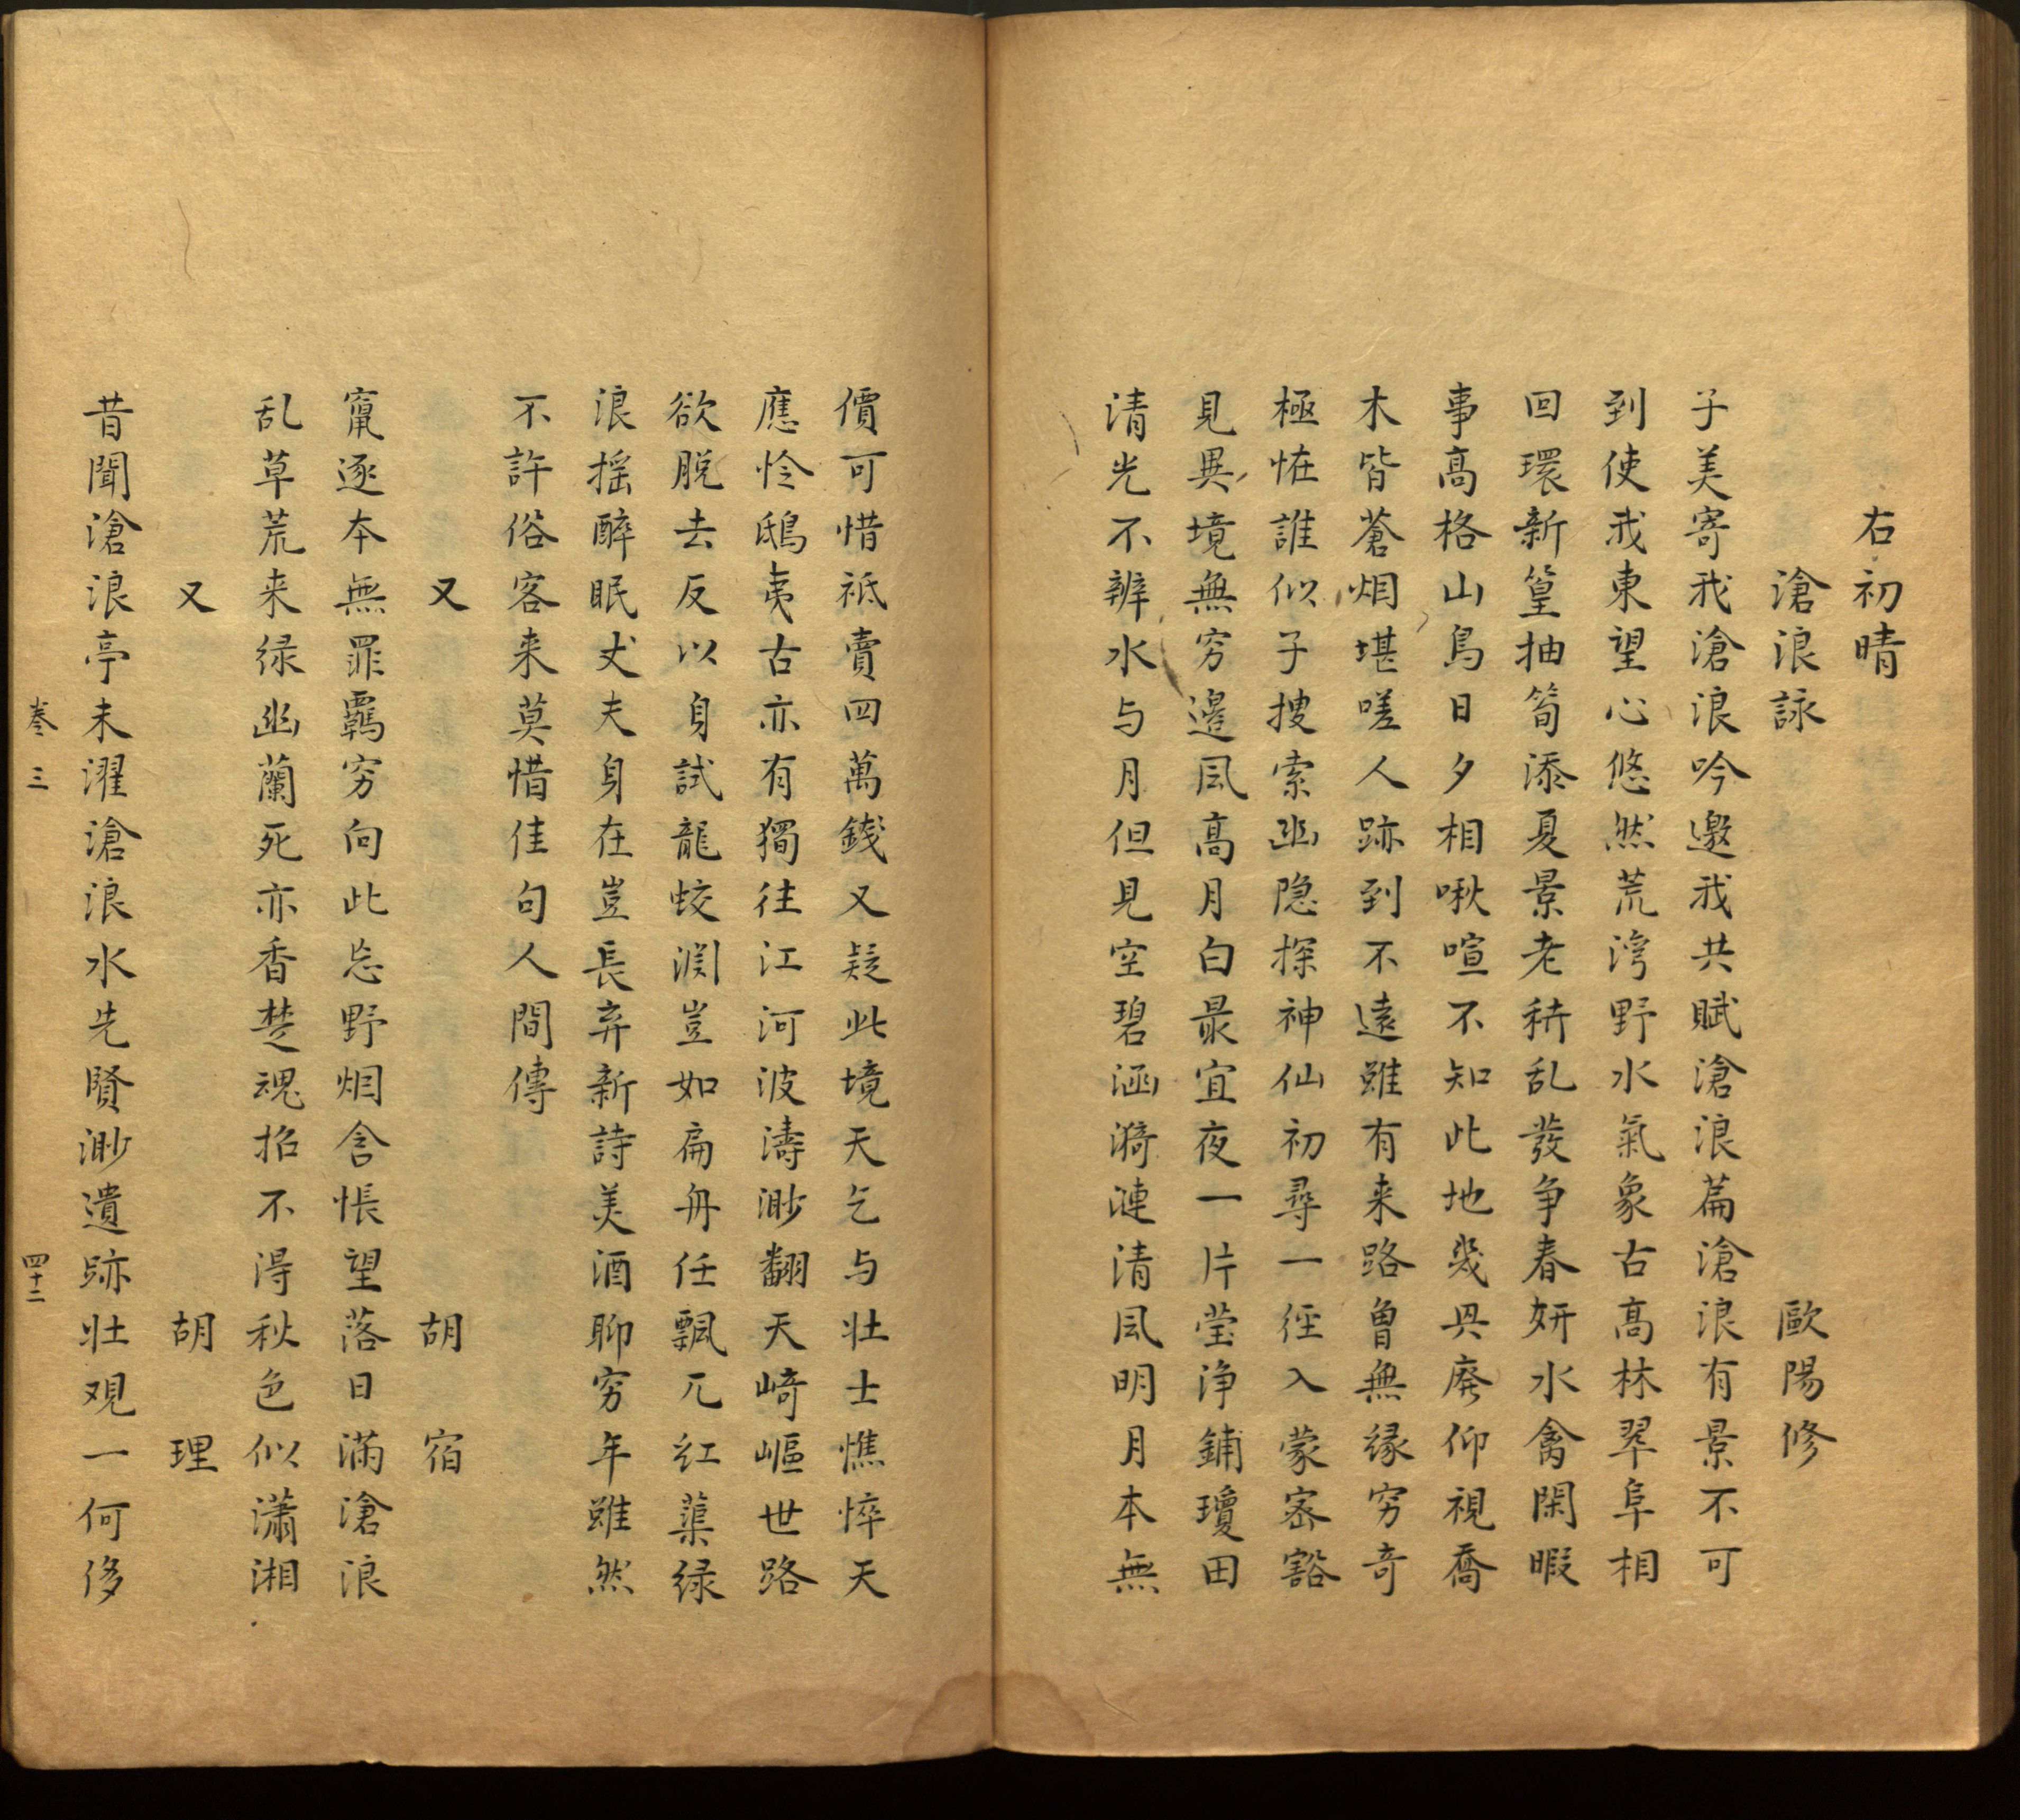 右初晴
滄浪詠　歐陽修
子美寄我滄浪吟邀我共賦滄浪篇滄浪有景不可
到使我東望心悠然荒湾野水氣象古高林翠阜相
回環新篁抽筍添夏景老枿乱發争春妍水禽閑暇
事高格山鳥日夕相啾喧不知此地幾興廢仰視喬
木皆蒼烟堪嗟人跡到不遠雖有来路曾無緣穷奇
極恠誰似子搜索幽隐探神仙初尋一徑入蒙密豁
見異境無穷邉風高月白最宜夜一片莹浄鋪瓊田
清光不辨水与月但見空碧涵漪漣清風明月本無
價可惜袛賣四萬錢又疑此境天乞与壮士憔悴天
應怜鴟夷古亦有獨往江河波濤渺翻天崎嶇世路
欲脱去反以身試龍蛟渕豈如扁舟任飄兀红蕖绿
浪摇醉眠丈夫身在豈長弃新詩美酒聊穷年雖然
不許俗客来莫惜佳句人間傳
又　胡宿
竄逐本無罪羁穷向此忘野烟含悵望落日滿滄浪
乱草荒来绿幽蘭死亦香楚魂招不得秋色似瀟湘
又　胡理
昔聞滄浪亭未濯滄浪水先賢渺遺跡壮观一何侈
卷三　四十二